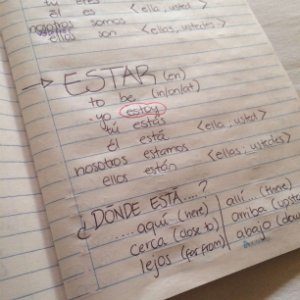 él es <ella, usted>
nosotros somos
ellos son <ellas, ustedes>
→ ESTAR (en)
to be (in/on/at)
yo estoy
tú estás
él está <ella, usted>
nosotros estamos
ellos están <ellas, ustedes>
¿DÓNDE ESTÁ....?
....aquí (here) allí... (there)
cerca (close to) arriba
lejos (far from) abajo